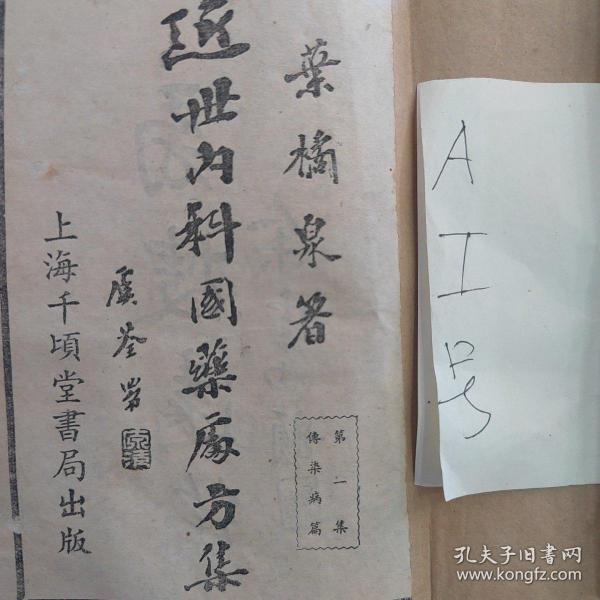 葉橘泉著
近世內科國藥處方集
第一集
傳染病篇
上海千頃堂書局出版
A
工
号
孔夫子旧书网
www.kongfz.com